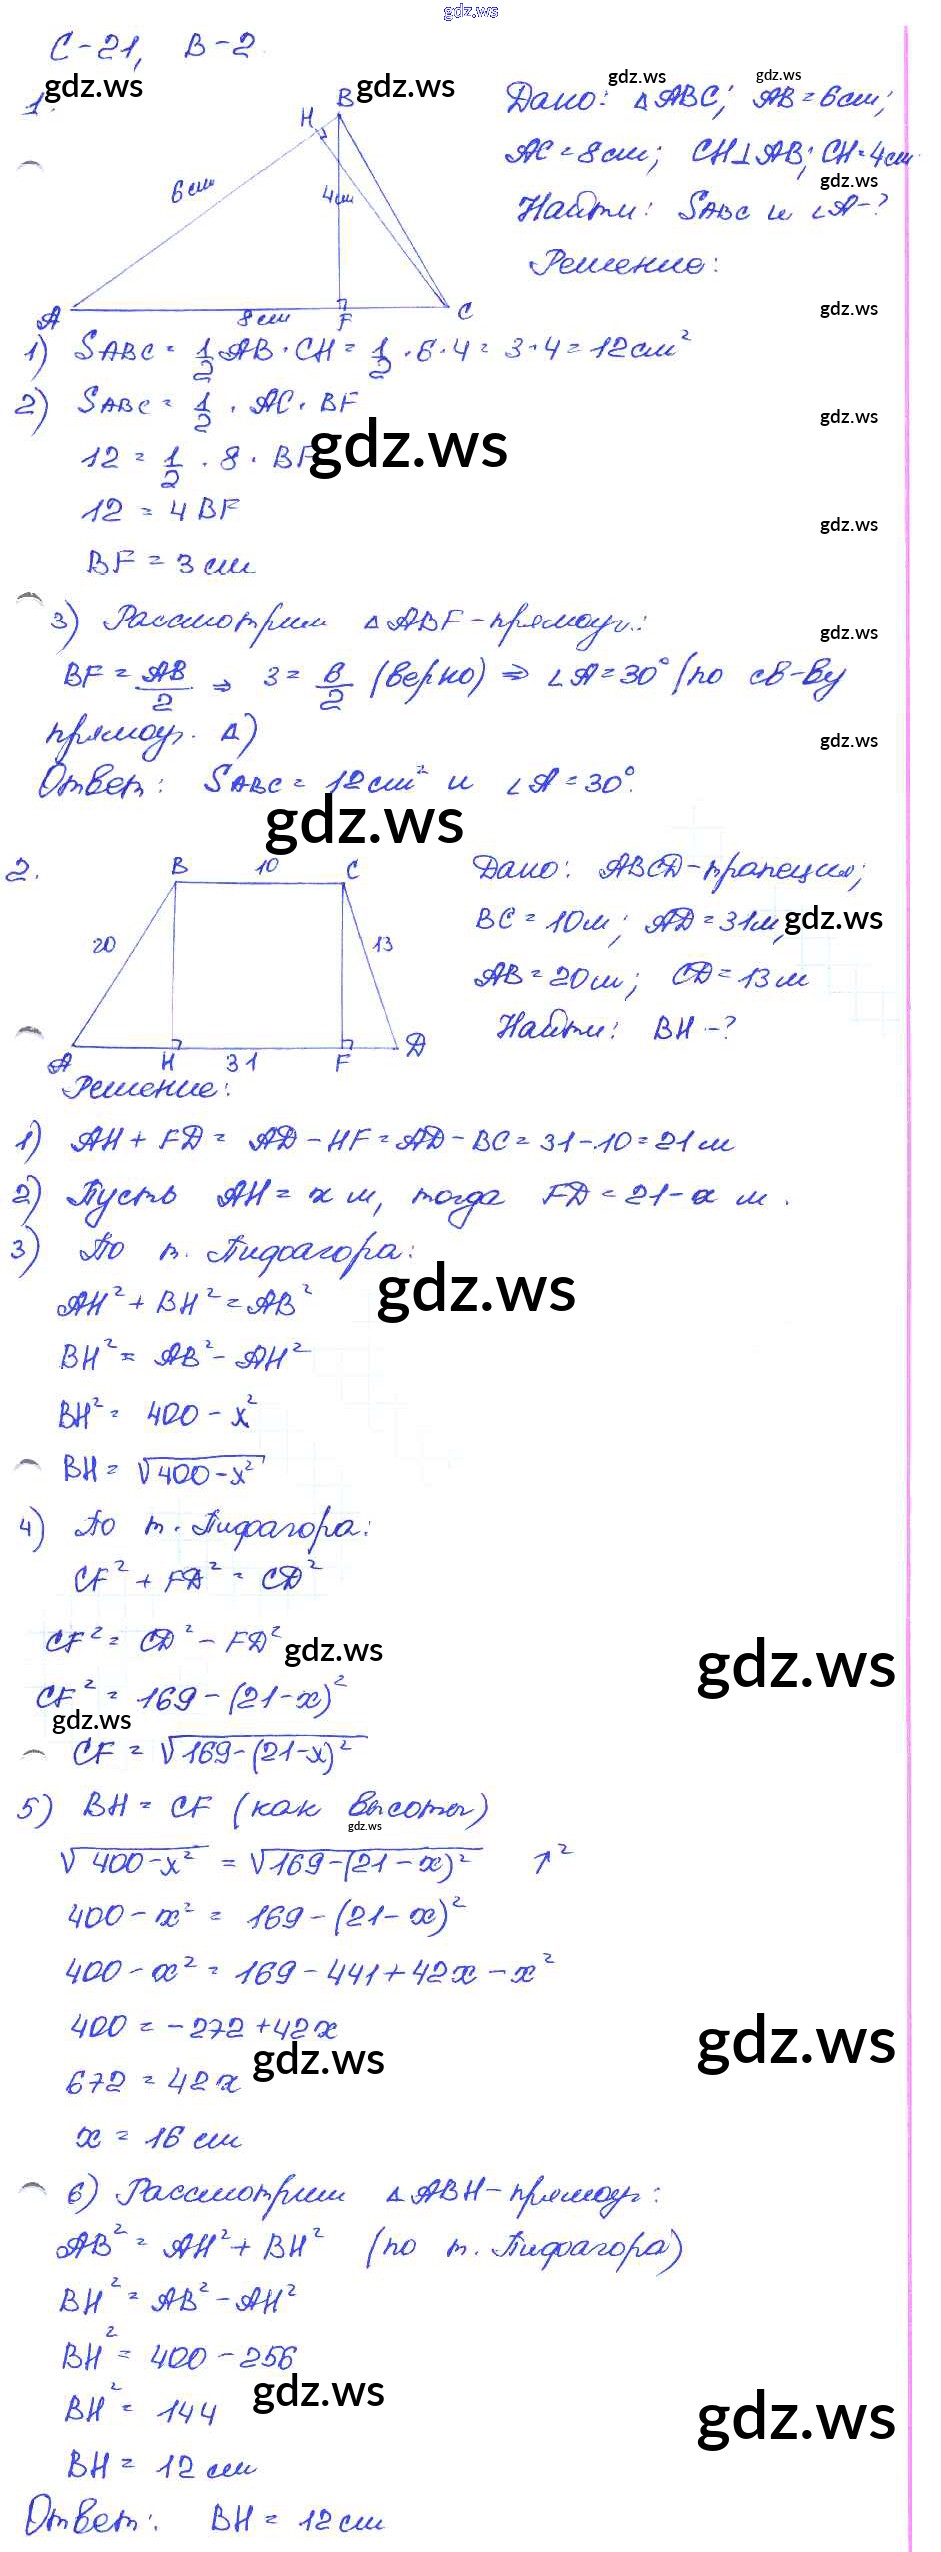 gdz.ws
С-21, В-2
gdz.ws
gdz.ws
gdz.ws
gdz.ws
1.
B
H
6 см
4см
A
8см
F
C
Дано: △ABC; AB=6см;
AC=8см; CH⊥AB; CH=4см
gdz.ws
Найти: SABC и ∠A-?
Решение:
gdz.ws
1) SABC = 1/2 AB · CH = 1/2 · 6 · 4 = 3 · 4 = 12 см²
2) SABC = 1/2 · AC · BF
gdz.ws
gdz.ws
12 = 1/2 · 8 · BF
12 = 4 BF
gdz.ws
BF = 3 см
3) Рассмотрим △ABF-прямоуг.:
gdz.ws
BF = AB/2 ⇒ 3 = 6/2 (верно) ⇒ ∠A=30° (по св-ву
прямоуг. △)
gdz.ws
Ответ: SABC = 12 см² и ∠A=30°.
gdz.ws
2.
B
10
C
20
13
A
H
31
F
D
Дано: ABCD-трапеция;
BC=10м; AD=31м;
gdz.ws
AB=20м; CD=13м
Найти: BH-?
Решение:
1) AH+FD = AD-HF = AD-BC = 31-10 = 21 м
2) Пусть AH = x м, тогда FD = 21-x м.
3) По т. Пифагора:
gdz.ws
AH² + BH² = AB²
BH² = AB² - AH²
BH² = 400 - x²
BH = √400-x²
4) По т. Пифагора:
CF² + FD² = CD²
CF² = CD² - FD²
gdz.ws
gdz.ws
CF² = 169 - (21-x)²
gdz.ws
CF = √169-(21-x)²
5) BH = CF (как высоты)
gdz.ws
√400-x² = √169-(21-x)² ↑²
400 - x² = 169 - (21-x)²
400 - x² = 169 - 441 + 42x - x²
400 = -272 + 42x
gdz.ws
gdz.ws
672 = 42x
x = 16 см
6) Рассмотрим △ABH-прямоуг:
AB² = AH² + BH² (по т. Пифагора)
BH² = AB² - AH²
BH² = 400 - 256
gdz.ws
gdz.ws
BH² = 144
BH = 12 см
Ответ: BH = 12 см